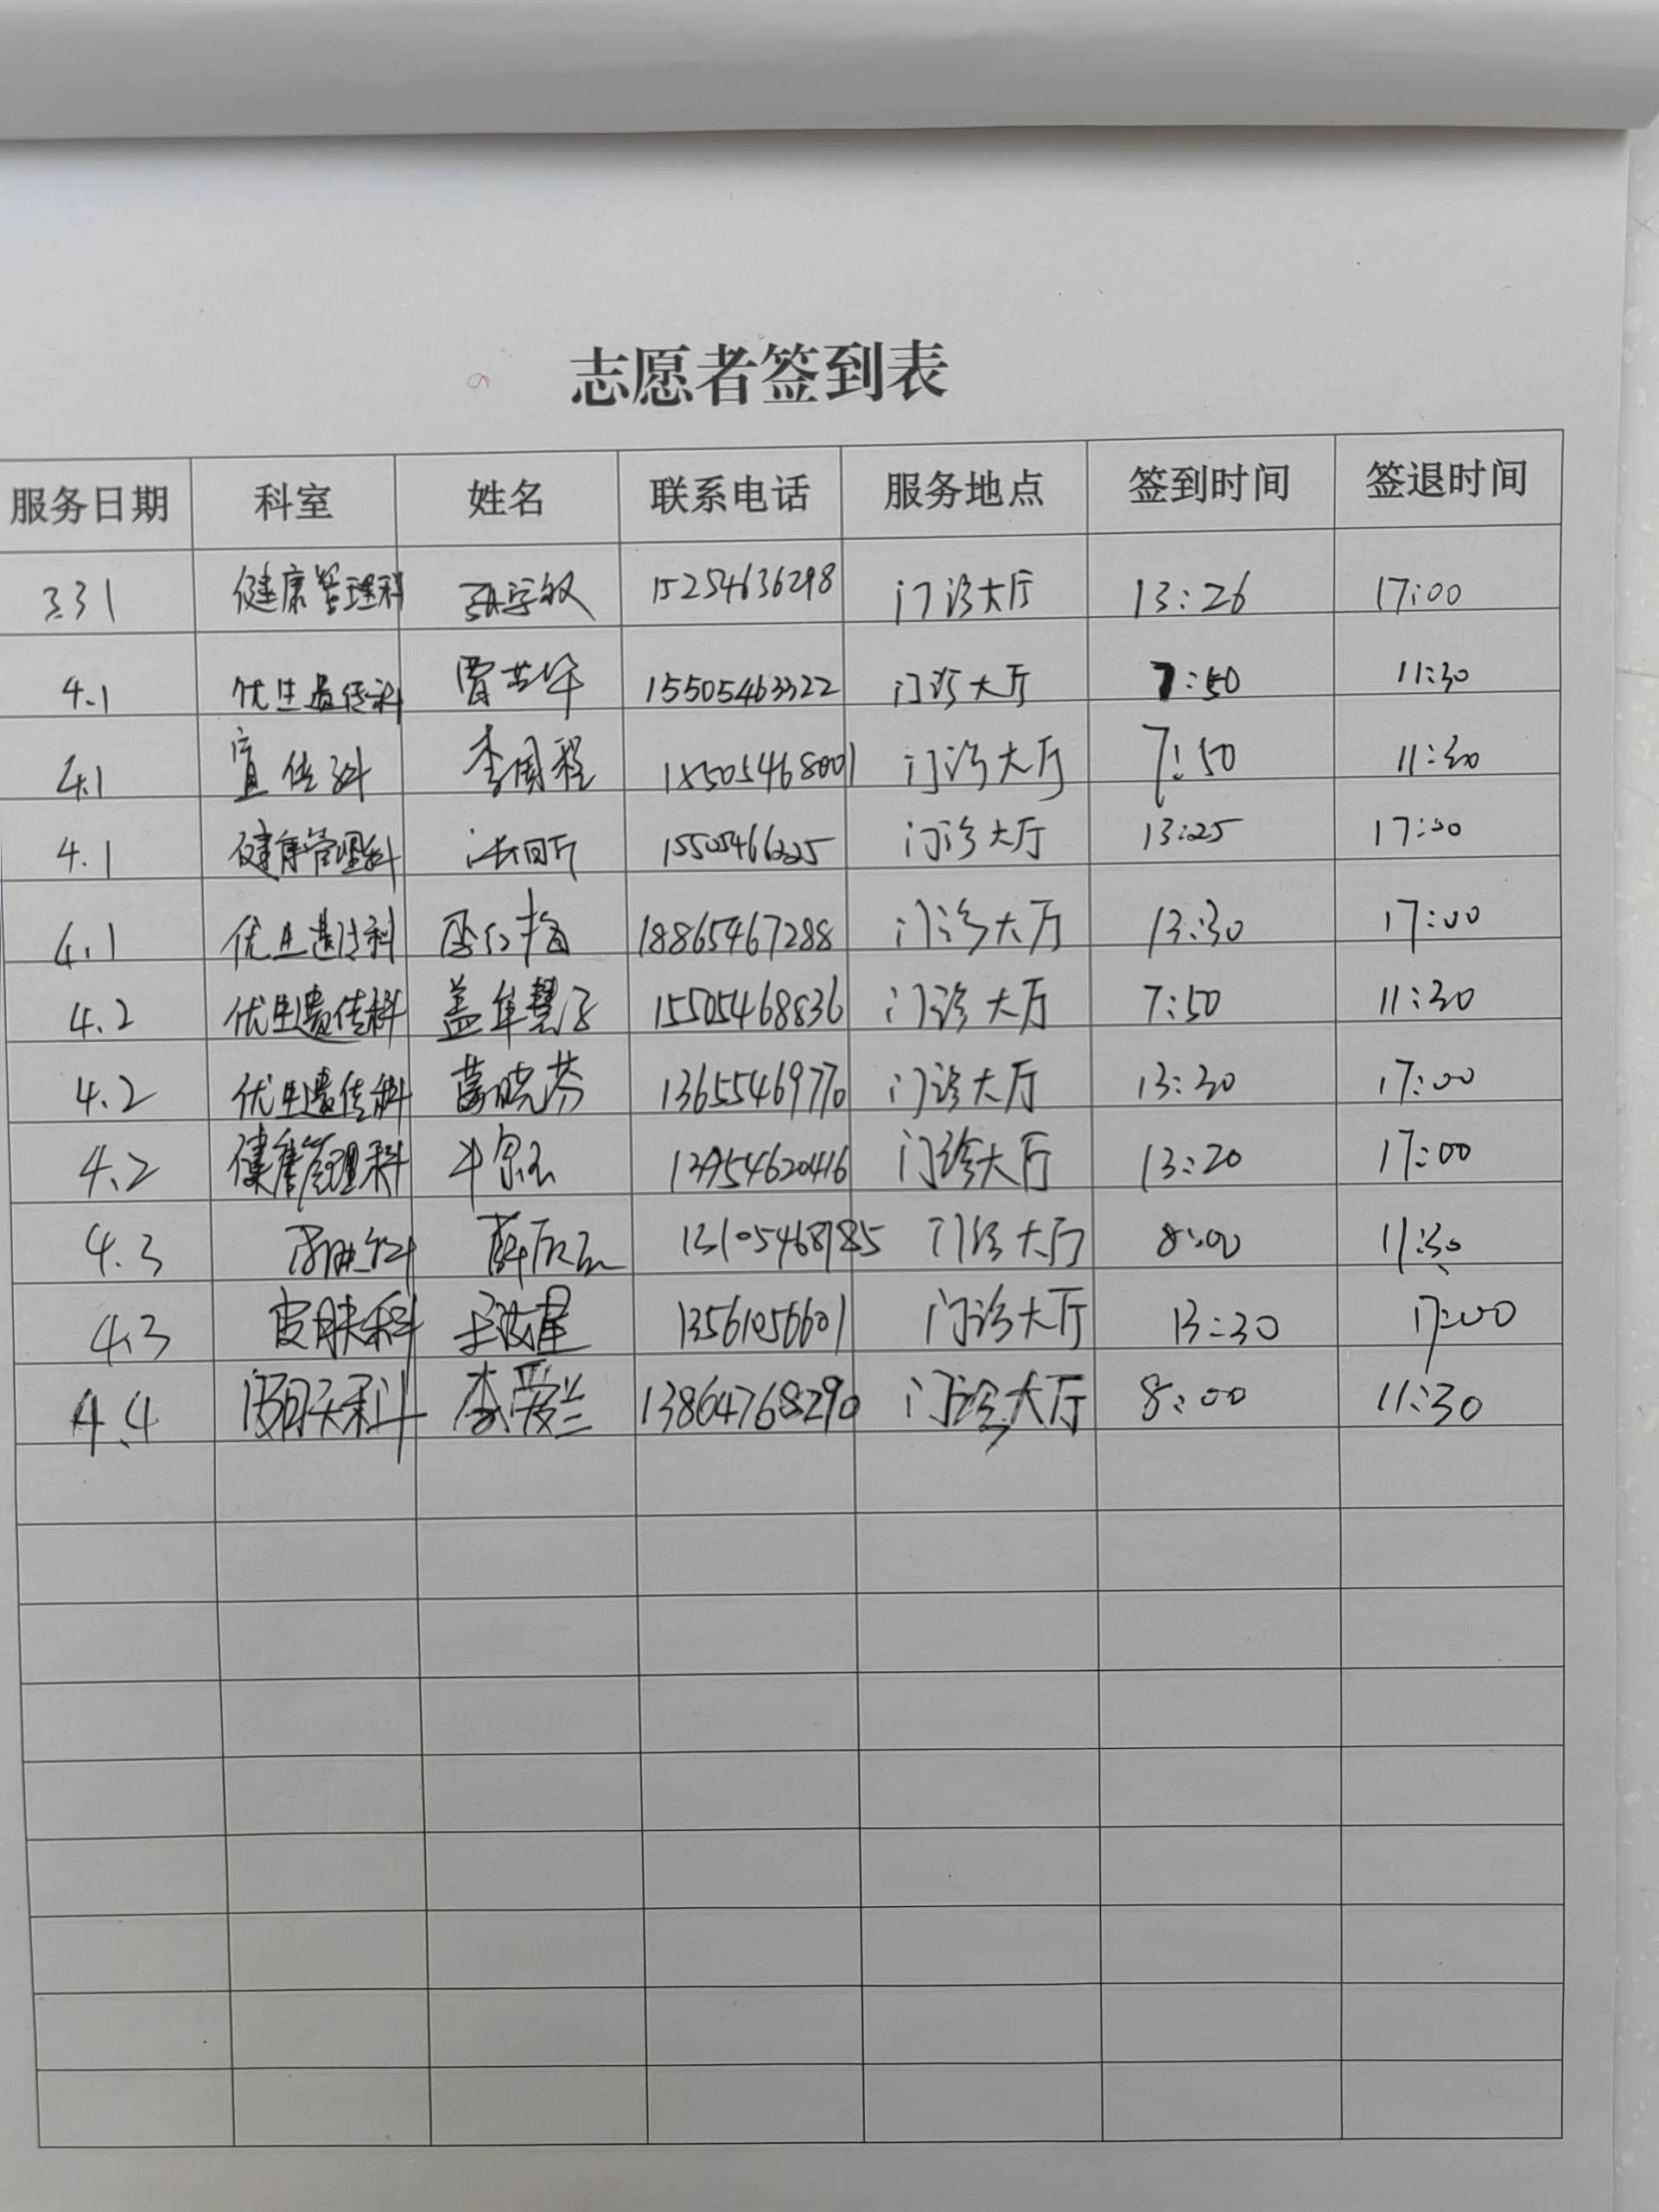 志愿者签到表
服务日期 科室 姓名 联系电话 服务地点 签到时间 签退时间
3.31 健康管理科 15254636298 门诊大厅 13:26 17:00
4.1 优生遗传科 15505463322 门诊大厅 7:50 11:30
4.1 宣传科 李国程 18505468001 门诊大厅 7:50 11:30
4.1 健康管理科 门诊大厅 13:25 17:00
4.1 优生遗传科 18865467288 门诊大厅 13:30 17:00
4.2 优生遗传科 15505468836 门诊大厅 7:50 11:30
4.2 优生遗传科 13655469770 门诊大厅 13:30 17:00
4.2 健康管理科 门诊大厅 13:20 17:00
4.3 门诊大厅 8:00 11:30
4.3 皮肤科 13561056601 门诊大厅 13:30 17:00
4.4 李爱兰 13864768290 门诊大厅 8:00 11:30